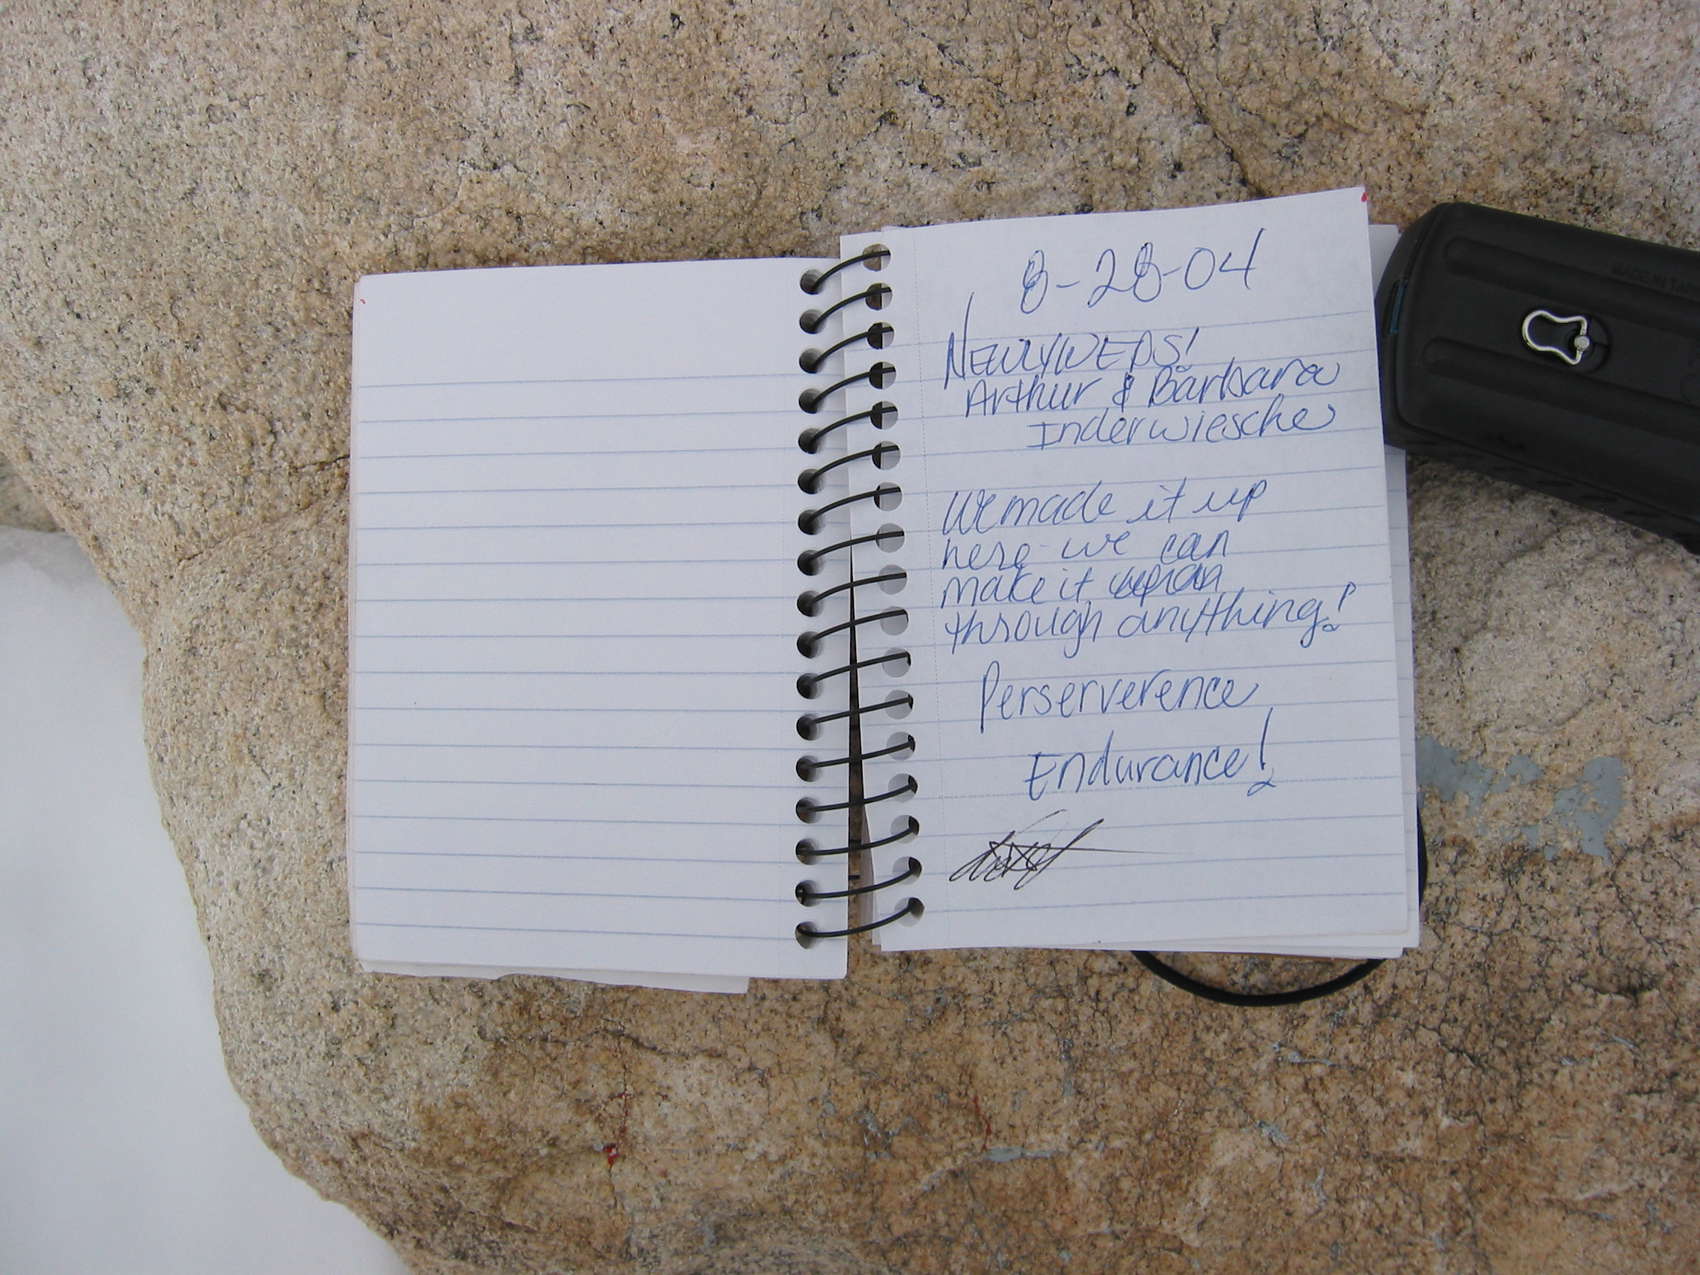 8-28-04
NEWLYWEDS!
Arthur & Barbara
Inderwiesche
We made it up
here - we can
make it
through anything!
Perserverence
Endurance!
MADE IN